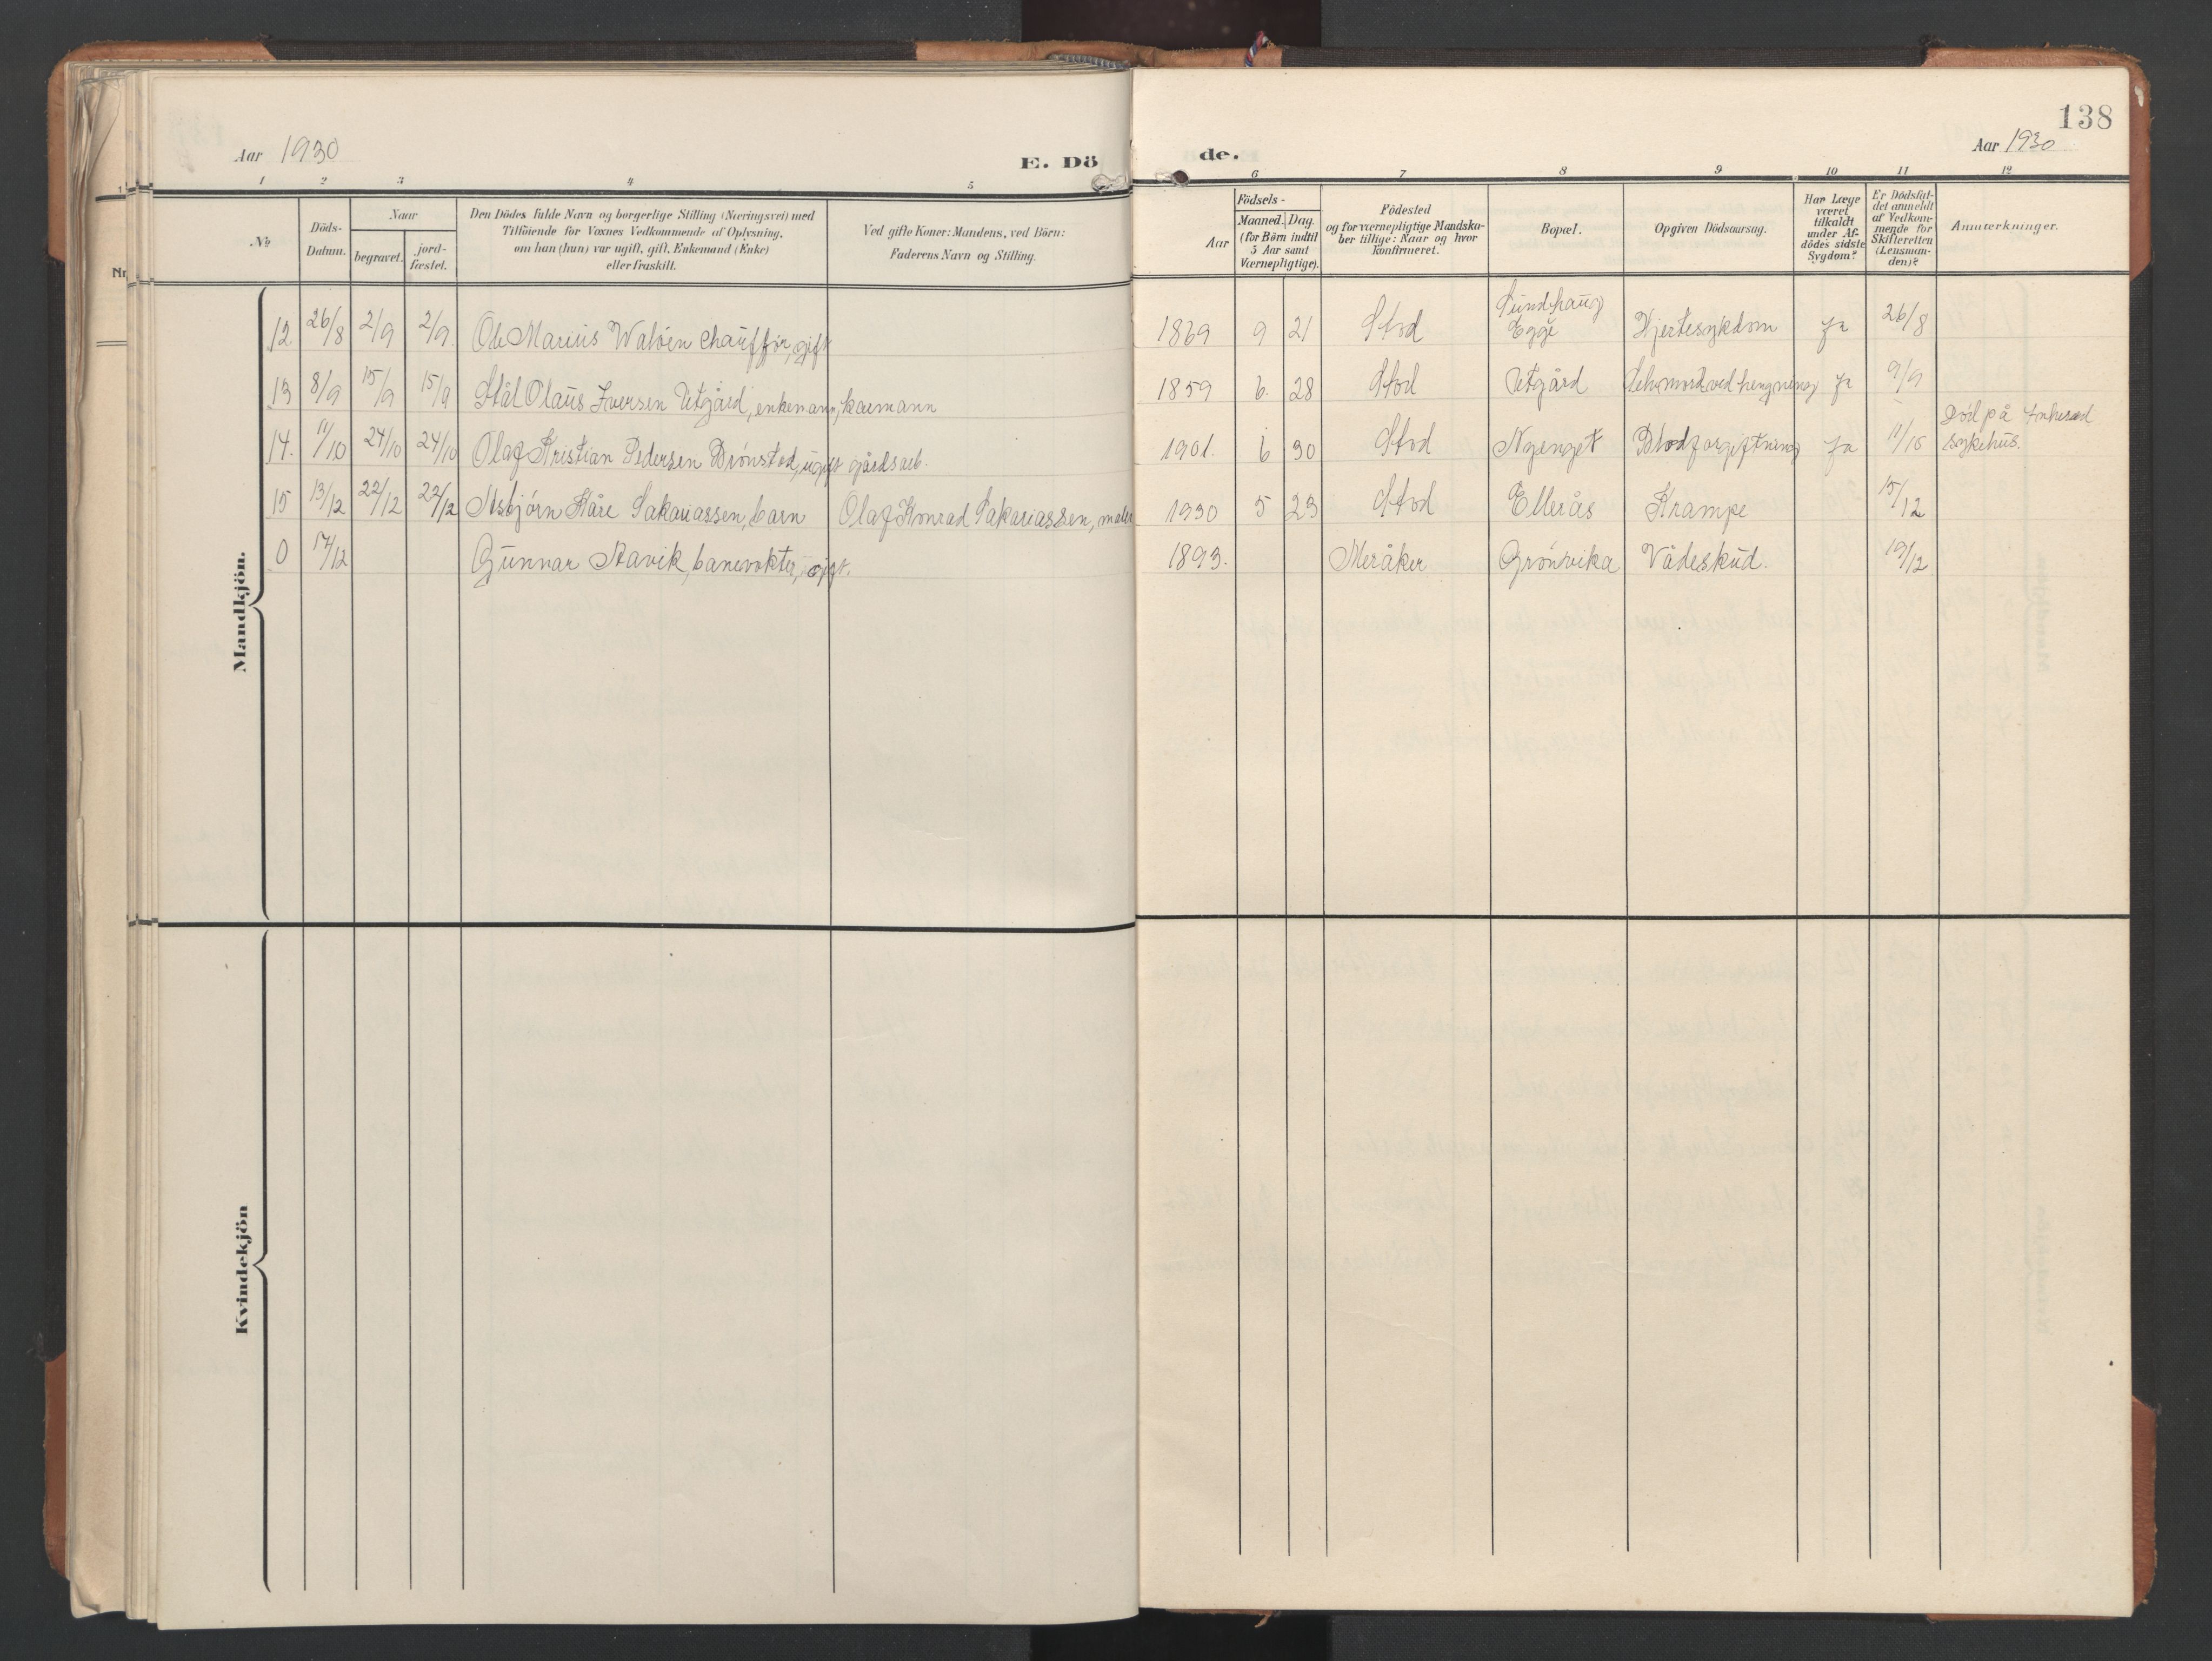 138
Aar 1930
E. Dö
de.
Aar 1930
1 2 3 4 5
6 7 8 9 10 11 12
№
Döds-Datum.
Naar
begravet.
jord-fæstet.
Den Dödes fulde Navn og borgerlige Stilling (Næringsvei) med
Tilföiende for Voxnes Vedkommende af Oplysning,
om han (hun) var ugift, gift, Enkemand (Enke)
eller fraskilt.
Ved gifte Koner: Mandens, ved Börn:
Faderens Navn og Stilling.
Aar
Födsels-
Maaned. Dag.
(for Börn indtil
5 Aar samt
Værnepligtige).
Födested
og for værnepligtige Mandska-
ber tillige: Naar og hvor
konfirmeret.
Bopæl.
Opgiven Dödsaarsag.
Har Læge
været
tilkaldt
under Af-
dödes sidste
Sygdom?
Er Dödsfal-
det anmeldt
af Vedkom-
mende for
Skifteretten
(Lensman-
den)?
Anmærkninger.
Mandkjön.
12. 26/8 2/9 2/9. Ole Marius Waløen chauffør, gift 1869 9 21 Stod Sundhaug Egge Hjertesykdom ja 26/8
13 8/9 15/9 15/9 Iversen Utgård, enkemann, kaarmann 1859 6. 28 Stod Utgård Selvmord ved hengning ja 9/9
14. 11/10 24/10 24/10 Olaf Kristian Pedersen Brønstad, ugift gårdsarb. 1901. 6 30 Stod Nyenget Blodforgiftning ja 11/10 Död på Innherad sykehus.
15 13/12 22/12 22/12 Asbjørn Kåre Sakariassen, barn Olaf Konrad Sakariassen, maler 1930 5 23 Stod Ellerås Krampe 15/12
0 17/12 Gunnar Aavik, banevokter, gift. 1893. Meråker Grønvika Vådeskud. 19/12
Kvindekjön